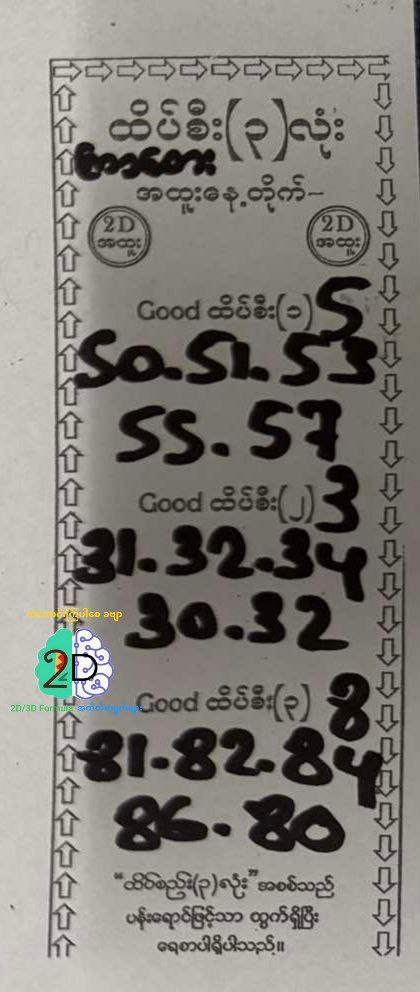 ထိပ်စီး(၃)လုံး
အထူးနေ့တိုက်–
2D
အထူး
2D
အထူး
Good ထိပ်စီး(၁) 5
50.51.53
55.57
Good ထိပ်စီး(၂) 3
31.32.34
30.32
2D
2D/3D Formula
Good ထိပ်စီး(၃) 8
81.82.84
86.80
“ထိပ်စည်း(၃)လုံး”အစစ်သည်
ပန်းရောင်ဖြင့်သာ ထွက်ရှိပြီး
ရေစာပါရှိပါသည်။